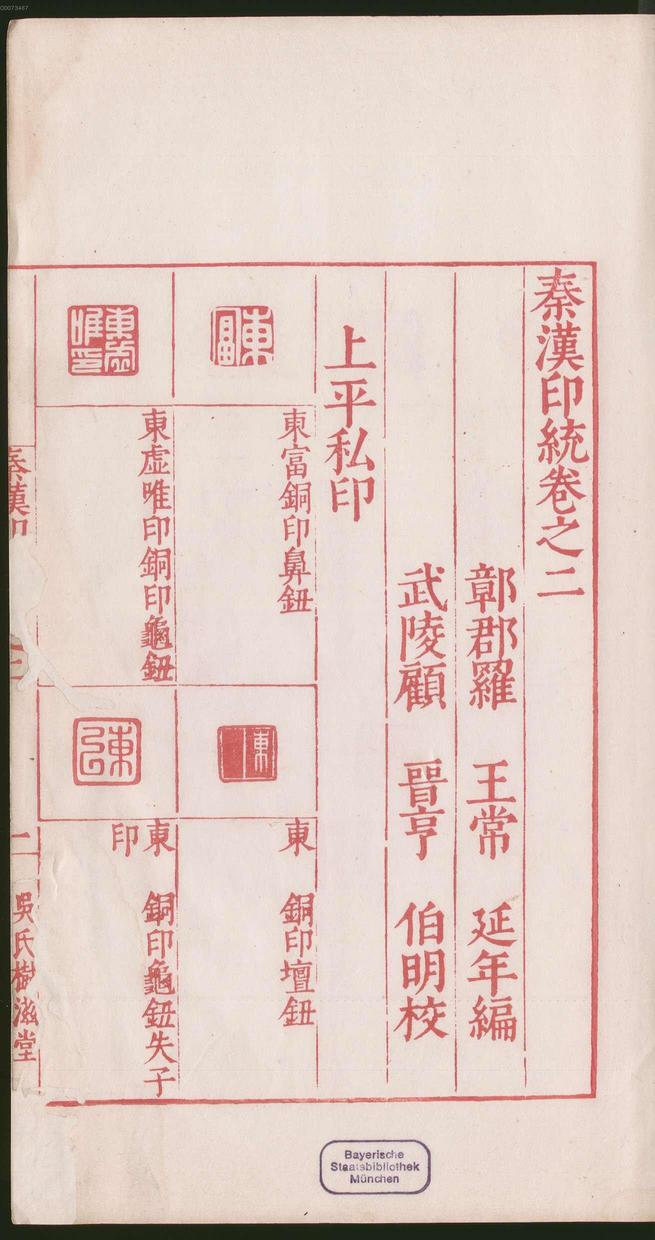 秦漢印統卷之二
鄣郡羅 王常 延年編
武陵顧 晉亨 伯明校
上平私印
東富銅印鼻鈕
東 銅印壇鈕
東虛唯印銅印龜鈕
東 銅印龜鈕失子
印
秦漢印
二
吳氏樹滋堂
Bayerische
Staatsbibliothek
München
00073467